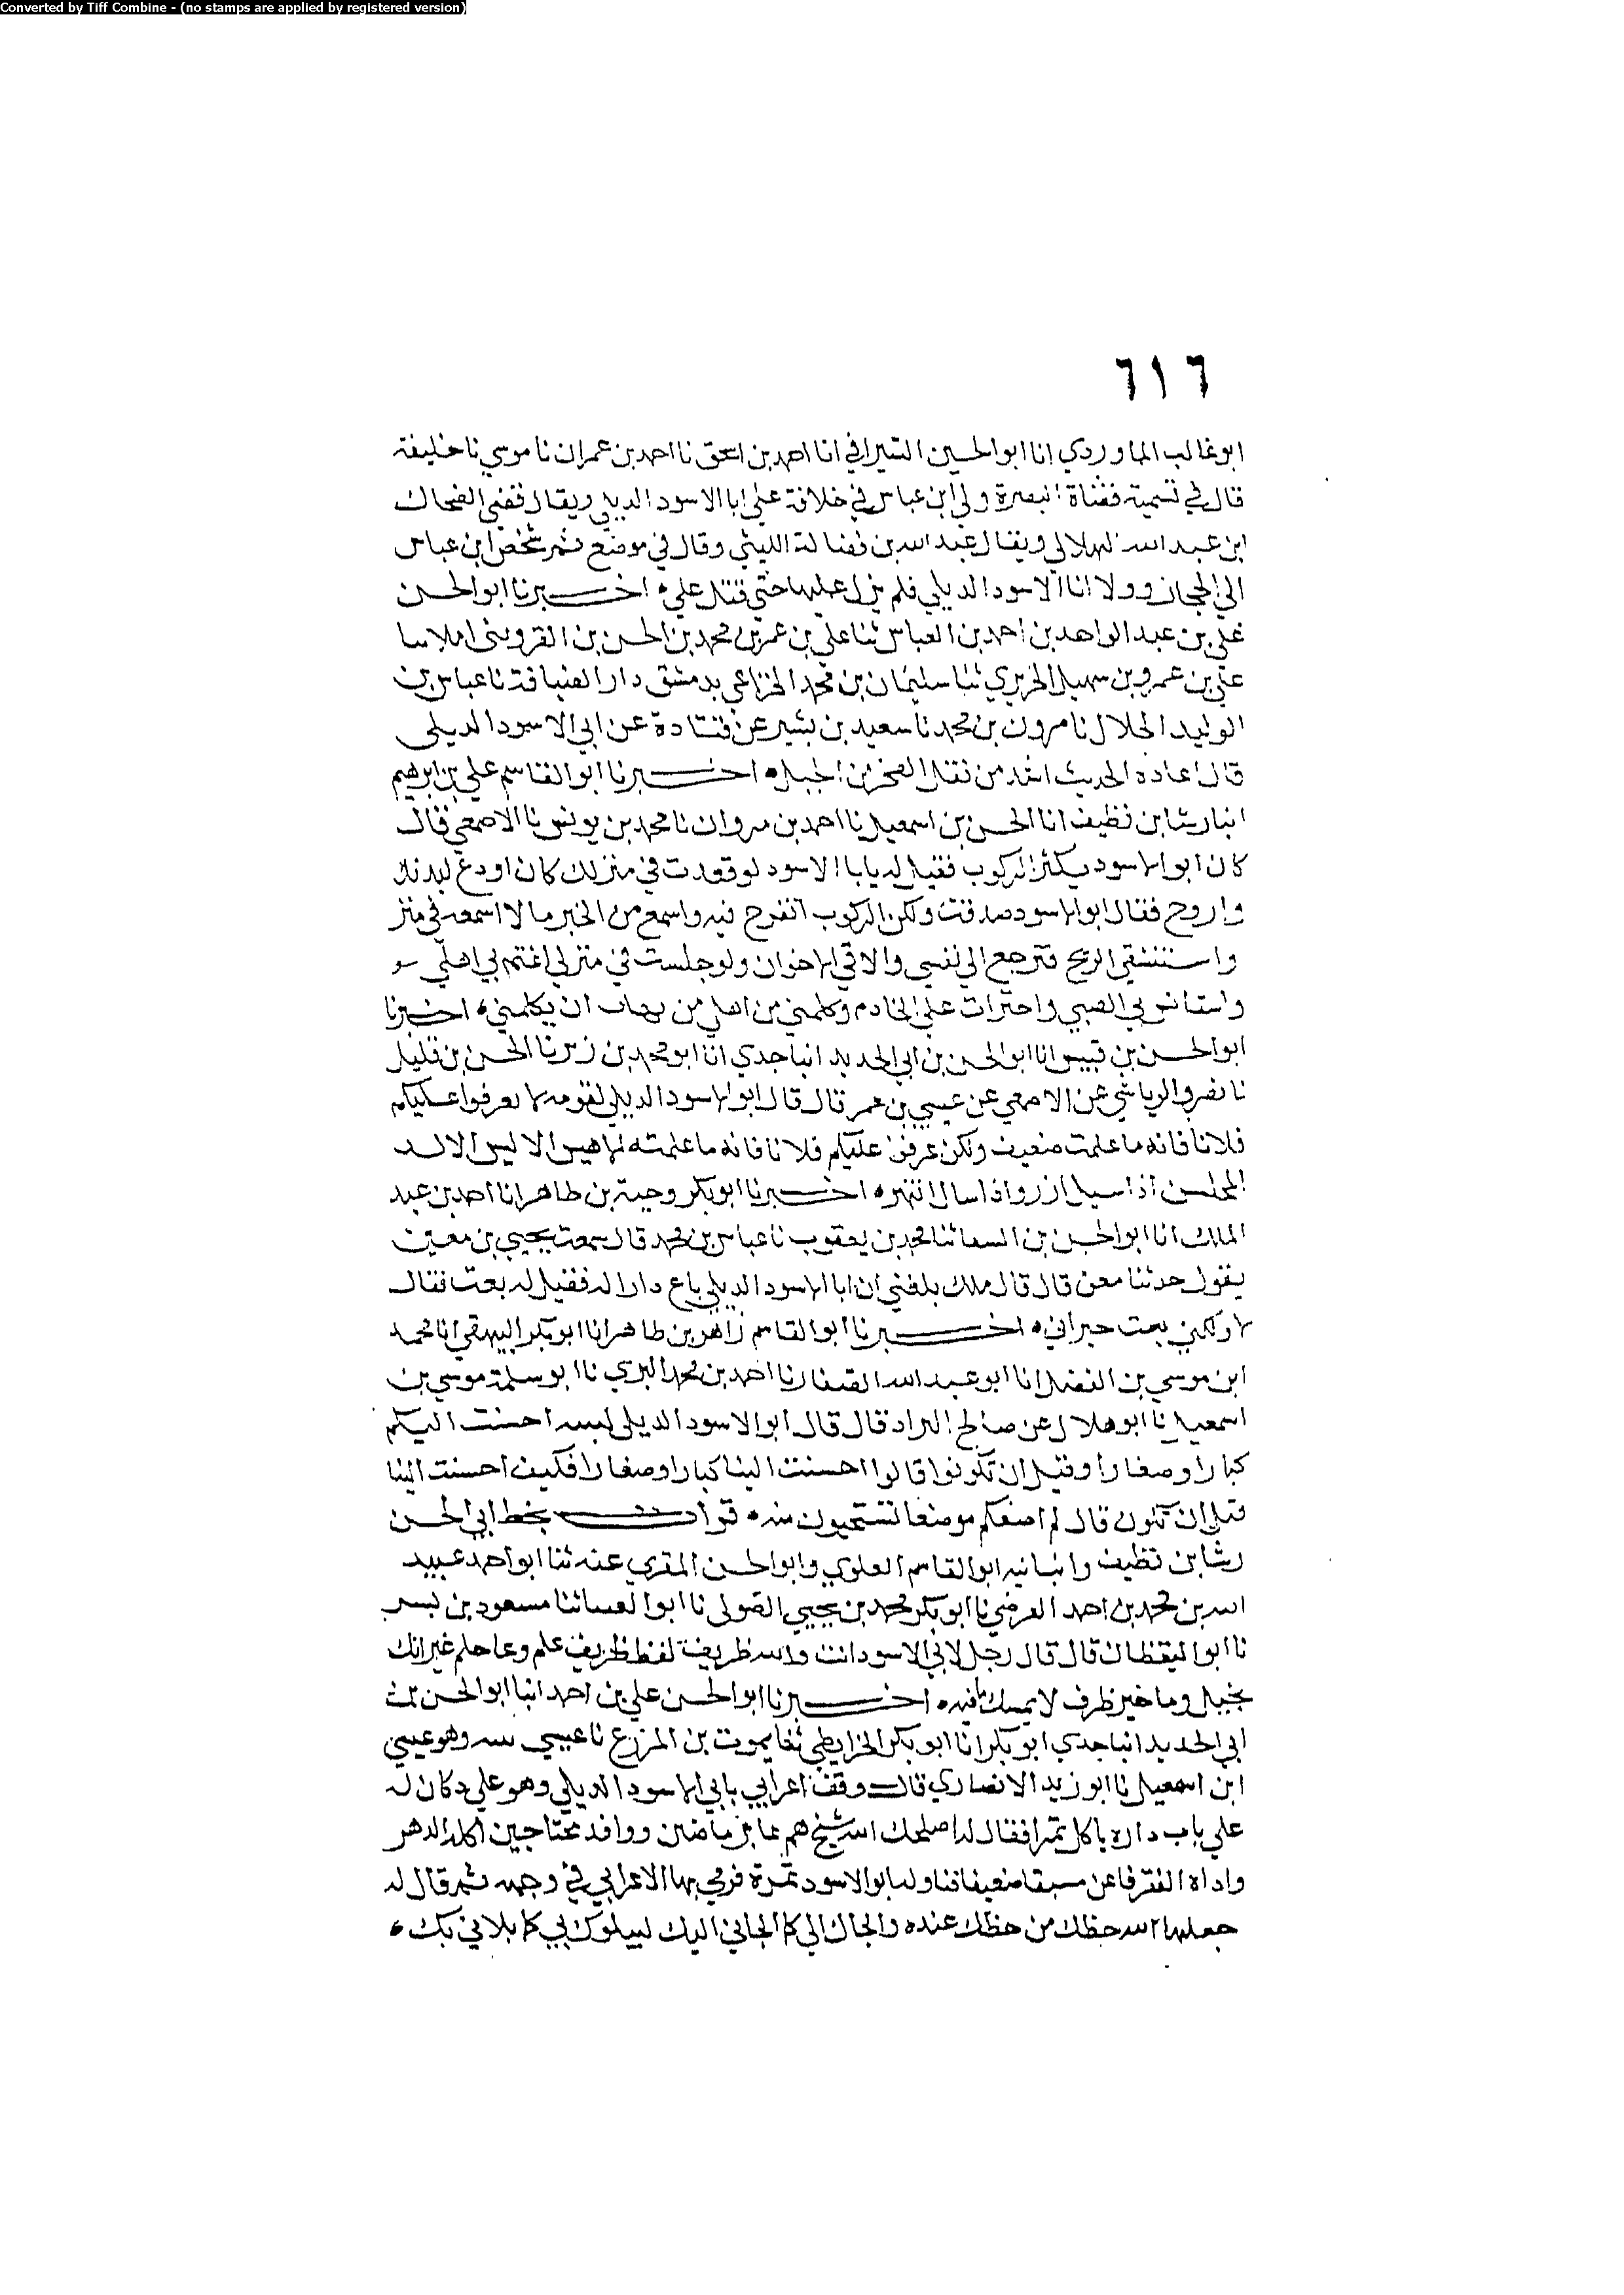 Converted by Tiff Combine - (no stamps are applied by registered version)
٦١٦
ابو غالب الماوردي انا ابو الحسين السيرافي انا احمد بن اسحق نا احمد بن عمران نا موسي نا خليفة
قال في تسمية قضاة البصرة ولي ابن عباس في خلافة علي ابا الاسود الديلي ويقال قضي الضحاك
ابن عبد الله الهلالي ويقال عبد الله بن فضالة الليثي وقال في موضع ثم شخص ابن عباس
الي الحجاز وولا انا الاسود الديلي فلم يزل عليها حتي قتل علي ه اخبرنا ابو الحسن
علي بن عبد الواحد بن احمد بن العباس ثنا علي بن عمر بن محمد بن الحسن بن القزويني املا سا
علي بن عمرو بن سهيل الحريري ثنا سليمان بن محمد الخزاعي بدمشق دار الضيافة نا عباس بن
الوليد الخلال نا مرون بن محمد نا سعيد بن بشير عن قتادة عن ابي الاسود الديلي
قال اعاده الحديث اشد من نقل الصخر من الجبل ه اخبرنا ابو القاسم علي بن ابرهيم
انبا رشا بن نظيف انا الحسن بن اسمعيل نا احمد بن مروان نا محمد بن يونس نا الاصمعي قال
كان ابو الاسود يكثر الركوب فقيل له يابا الاسود لو قعدت في منزلك كان اودع لبدنك
واروح فقال ابو الاسود صدقت ولكن الركوب اتفرح فيه واسمع من الخبر ما لا اسمعه في منز
واستنشق الريح فترجع الي نفسي والاقي الاخوان ولو جلست في منزلي اغتم بي اهلي
واستانس بي الصبي واجترات علي الخادم وكلمني من اهلي من يهاب ان يكلمني ه اخبرنا
ابو الحسن بن قبيس انا ابو الحسن بن ابي الحديد انبا جدي انا ابو محمد بن زبر نا الحسن بن قليل
نا نصر والرياشي عن الاصمعي عن عيسي بن عمر قال قال ابو الاسود الديلي لقومه لا تعرفوا عليكم
فلانا فانه ما علمت ضعيف ولكن عرفوا عليكم فلانا فانه ما علمته الاهيس الا ليس الالد
الملحس اذا سيل ارز واذا سال انتهز ه اخبرنا ابو بكر وجية بن طاهر انا احمد بن عبد
الملك انا ابو الحسن بن السقا ثنا محمد بن يعقوب نا عباس بن محمد قال سمعت يحيي بن معين
يقول حدثنا معن قال قال ملك بلغني ان ابا الاسود الديلي باع دارا له فقيل له بعت فقال
لا ولكني بعت جيراني ه اخبرنا ابو القاسم زاهر بن طاهر انا ابو بكر البيهقي انا محمد
ابن موسي بن الفضل انا ابو عبد الله الصفار نا احمد بن محمد البرتي نا ابو سلمة موسي بن
اسمعيل نا ابو هلال عن صالح البراد قال قال ابو الاسود الديلي لبنيه احسنت اليكم
كبارا وصغارا وقبل ان تكونوا قالوا احسنت الينا كبارا وصغارا فكيف احسنت الينا
قبل ان نكون قال لم اضعكم موضعا تستحيون منه ه قرات بخط ابي الحسن
رشا بن نظيف وانبانيه ابو القاسم العلوي وابو الحسن المقري عنه ثنا ابو احمد عبيد
الله بن محمد بن احمد الفرضي نا ابو بكر محمد بن يحيي الصولي نا ابو العسا ثنا مسعود بن بشر
نا ابو اليقظان قال قال رجل لابي الاسود انت والله ظريف لفظ ظريف علم وعا حلم غير انك
بخيل وما خير ظرف لا يمسك ما فيه ه اخبرنا ابو الحسن علي بن احمد انبا ابو الحسن بن
ابي الحديد انبا جدي ابو بكر انا ابو بكر الخرايطي ثنا يموت بن المزرع نا عيسي وهو عيسي
ابن اسمعيل نا ابو زيد الانصاري قال وقف اعرابي بابي الاسود الديلي وهو علي دكان له
علي باب داره ياكل تمرا فقال له اصلحك الله شيخ هم غابر ماضين ووافد محتاجين اكله الدهر
واداه الفقر فاعن ضعيفا فناوله ابو الاسود تمرة فرمي بها الاعرابي في وجهه ثم قال له
جعلها الله حظك من حظك عنده والجاك الي كما الجاني اليك ليبلوك بي كما بلاني بك ه